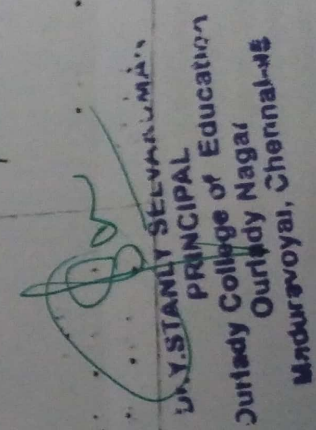 Dr.Y.STANLY SELVAKUMAR,
PRINCIPAL
Ourlady College of Education
Ourlady Nagar
Maduravoyal, Chennai-95